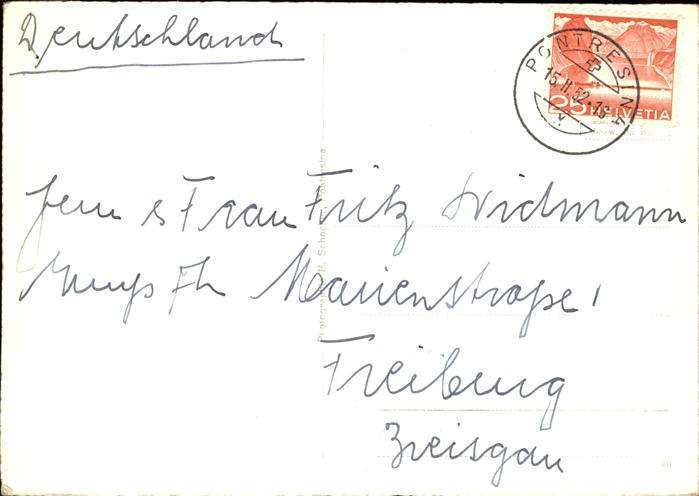 Deutschland
PONTRESINA
15.II.52.-16
25 HELVETIA
Herrn & Frau Fritz Widmann
Marienstraße 1
Freiburg
Breisgau